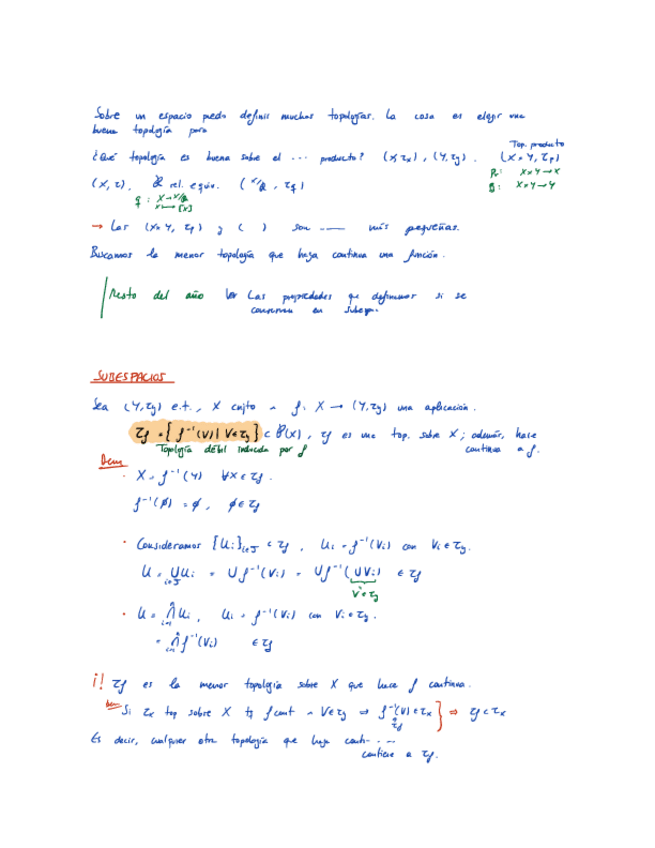 Sobre un espacio puedo definir muchas topologías. La cosa es elegir una
buena topología para
Top. producto
¿Qué topología es buena sobre el ... producto? (X,τx), (Y,τy). (X×Y, τp)
p₁: X×Y→X
(X,τ), R rel. equiv. (X/R, τq)
p₂: X×Y→Y
q: X→X/R
x↦[x]
→ Las (X×Y, τp) y ( ) son ---- más pequeñas.
Buscamos la menor topología que haga continua una función.
Resto del año Ver Las propiedades que definimos si se
conservan en subesp.
SUBESPACIOS
Sea (Y,τy) e.t., X cnjto ∧ f: X → (Y,τy) una aplicación.
τf = { f⁻¹(V) | V∈τy } ⊂ P(X), τf es una top. sobre X; además, hace
Topología débil inducida por f
continua a f.
Dem
· X = f⁻¹(Y) ∀X∈τf.
f⁻¹(∅) = ∅, ∅∈τf
· Consideramos {Ui}i∈J ⊂ τf, Ui = f⁻¹(Vi) con Vi∈τy.
U = ⋃i∈J Ui = ⋃ f⁻¹(Vi) = ⋃ f⁻¹(⋃Vi) ∈ τf
V∈τy
· U = ⋂ⁿi=1 Ui, Ui = f⁻¹(Vi) con Vi∈τy.
= ⋂ⁿi=1 f⁻¹(Vi) ∈ τf
¡! τf es la menor topología sobre X que hace f continua.
Dem
Si τx top sobre X tq f cont ∧ V∈τy ⇒ f⁻¹(V)∈τx } ⇒ τf⊂τx
τf
Es decir, cualquier otra topología que haga conti- --
contiene a τf.